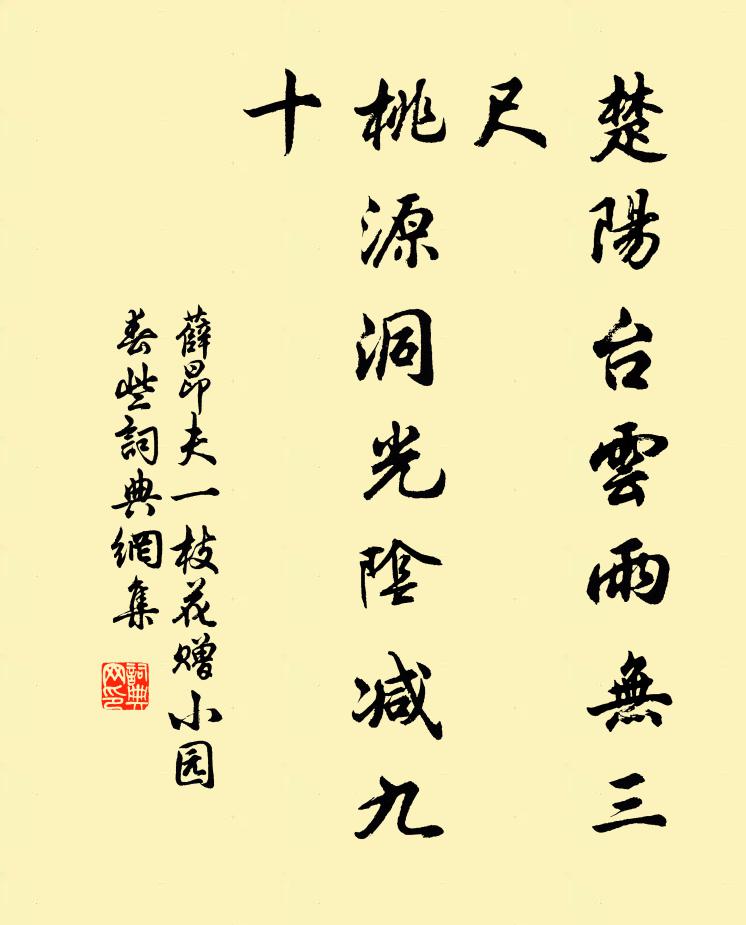 楚陽台雲雨無三
尺
桃源洞光陰减九
十
薛昂夫一枝花赠小园
春些詞典網集
詞典
网印